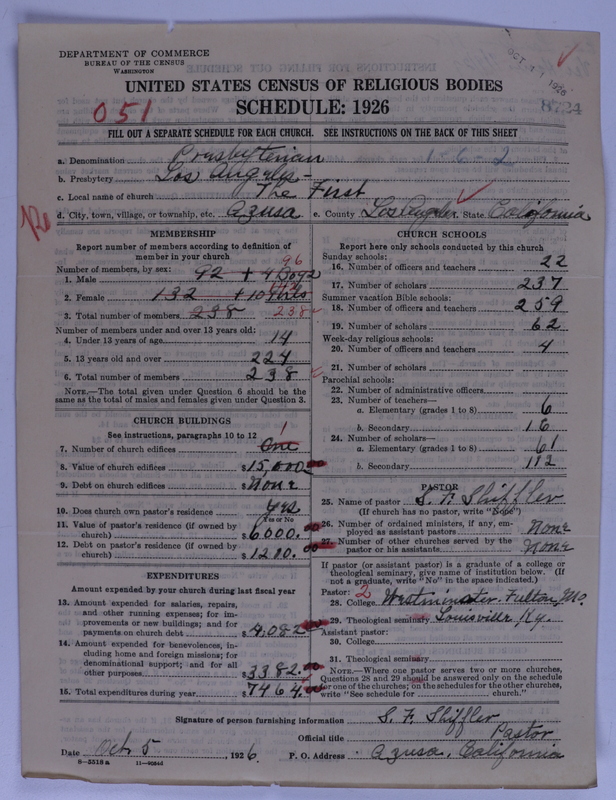 DEPARTMENT OF COMMERCE
BUREAU OF THE CENSUS
WASHINGTON
OCT 1926
UNITED STATES CENSUS OF RELIGIOUS BODIES
SCHEDULE: 1926
051
8724
FILL OUT A SEPARATE SCHEDULE FOR EACH CHURCH. SEE INSTRUCTIONS ON THE BACK OF THIS SHEET
a. Denomination Presbyterian 1-6-2
b. Presbytery Los Angeles -
c. Local name of church The First
d. City, town, village, or township, etc. Azusa e. County Los Angeles, State California
MEMBERSHIP
Report number of members according to definition of
member in your church
Number of members, by sex: 96
1. Male 92 + 4 Boys
2. Female 132 + 10 Girls 142
3. Total number of members 238 238
Number of members under and over 13 years old:
4. Under 13 years of age 14
5. 13 years old and over 224
6. Total number of members 238
NOTE.—The total given under Question 6 should be the
same as the total of males and females given under Question 3.
CHURCH BUILDINGS
See instructions, paragraphs 10 to 12
7. Number of church edifices One 1
8. Value of church edifices $15,000
9. Debt on church edifices $ None
10. Does church own pastor's residence? Yes
Yes or No
11. Value of pastor's residence (if owned by
church) $6000.00
12. Debt on pastor's residence (if owned by
church) $1200.00
EXPENDITURES
Amount expended by your church during last fiscal year
13. Amount expended for salaries, repairs,
and other running expenses; for im-
provements or new buildings; and for
payments on church debt $4,082
14. Amount expended for benevolences, in-
cluding home and foreign missions; for
denominational support; and for all
other purposes $3382
15. Total expenditures during year $7464
CHURCH SCHOOLS
Report here only schools conducted by this church
Sunday schools:
16. Number of officers and teachers 22
17. Number of scholars 237
Summer vacation Bible schools:
18. Number of officers and teachers 259
19. Number of scholars 62
Week-day religious schools:
20. Number of officers and teachers 4
21. Number of scholars
Parochial schools:
22. Number of administrative officers
23. Number of teachers—
a. Elementary (grades 1 to 8) 6
b. Secondary 16
24. Number of scholars—
a. Elementary (grades 1 to 8) 61
b. Secondary 112
PASTOR
25. Name of pastor S. F. Shiffler
(If church has no pastor, write "None")
26. Number of ordained ministers, if any, em-
ployed as assistant pastors None
27. Number of other churches served by the
pastor or his assistant None
If pastor (or assistant pastor) is a graduate of a college or
theological seminary, give name of institution below. (If
not a graduate, write "No" in the space indicated.)
Pastor: 2
28. College Westminster. Fulton, Mo.
29. Theological seminary Louisville, Ky.
Assistant pastor:
30. College
31. Theological seminary
NOTE.—Where one pastor serves two or more churches,
Questions 28 and 29 should be answered only on the schedule
for one of the churches; on the schedules for the other churches,
write "See schedule for church."
Signature of person furnishing information S. F. Shiffler
Official title Pastor
Date Oct 5, 1926 P. O. Address Azusa, California
8—5518 a 11—9064d